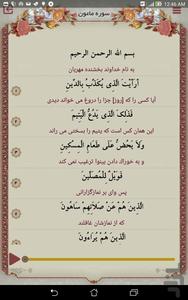 12:46 AM
سوره ماعون
بسم الله الرحمن الرحیم
به نام خداوند بخشنده مهربان
أَرَأَيْتَ الَّذِي يُكَذِّبُ بِالدِّينِ
آیا کسی را که [روز] جزا را دروغ می خواند دیدی
فَذَلِكَ الَّذِي يَدُعُّ الْيَتِيمَ
این همان کس است که یتیم را بسختی می راند
وَلَا يَحُضُّ عَلَى طَعَامِ الْمِسْكِينِ
و به خوراک دادن بینوا ترغیب نمی کند
فَوَيْلٌ لِّلْمُصَلِّينَ
پس وای بر نمازگزارانی
الَّذِينَ هُمْ عَن صَلَاتِهِمْ سَاهُونَ
که از نمازشان غافلند
الَّذِينَ هُمْ يُرَاءُونَ